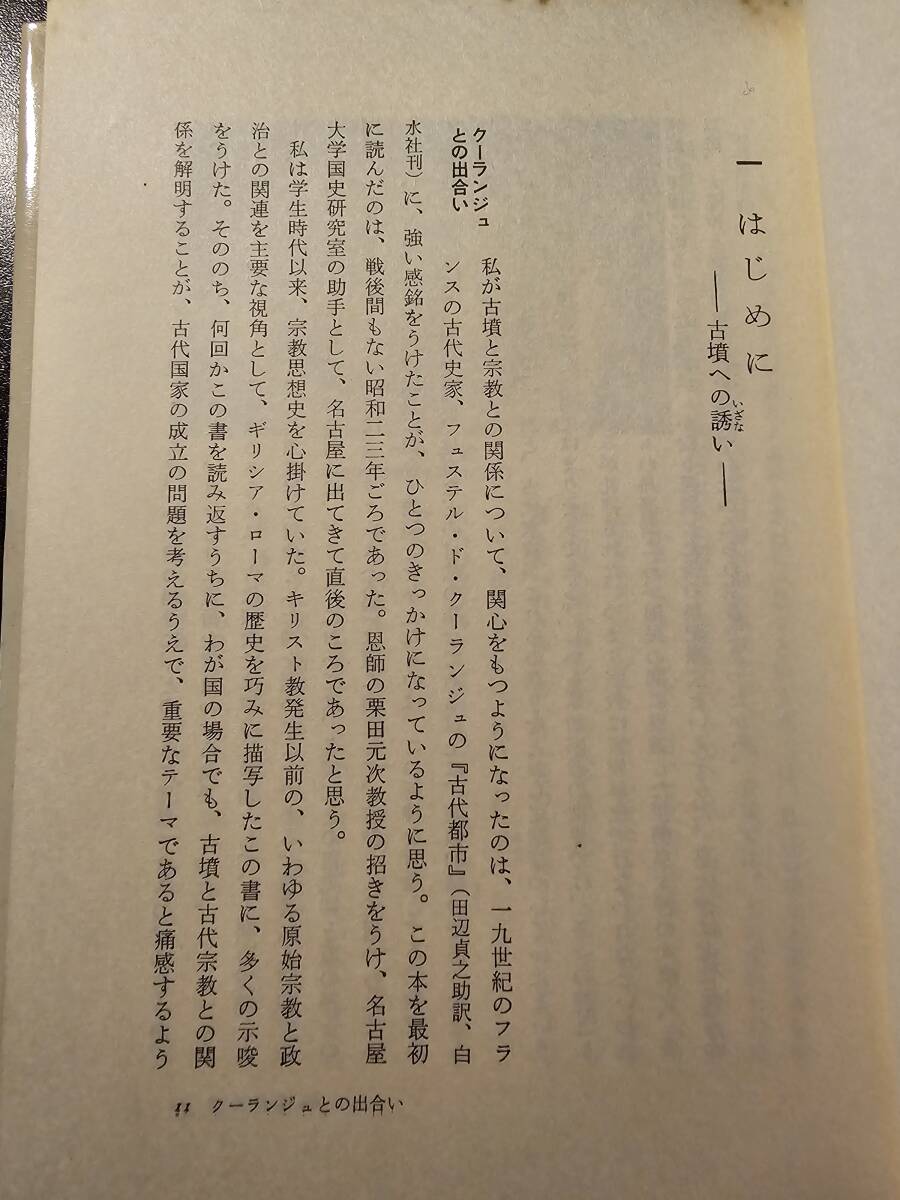 一 はじめに
――古墳への誘い――
いざな
クーランジュ
との出合い
私が古墳と宗教との関係について、関心をもつようになったのは、一九世紀のフラ
ンスの古代史家、フュステル・ド・クーランジュの『古代都市』（田辺貞之助訳、白
水社刊）に、強い感銘をうけたことが、ひとつのきっかけになっているように思う。この本を最初
に読んだのは、戦後間もない昭和二三年ごろであった。恩師の栗田元次教授の招きをうけ、名古屋
大学国史研究室の助手として、名古屋に出てきて直後のころであったと思う。
私は学生時代以来、宗教思想史を心掛けていた。キリスト教発生以前の、いわゆる原始宗教と政
治との関連を主要な視角として、ギリシア・ローマの歴史を巧みに描写したこの書に、多くの示唆
をうけた。そののち、何回かこの書を読み返すうちに、わが国の場合でも、古墳と古代宗教との関
係を解明することが、古代国家の成立の問題を考えるうえで、重要なテーマであると痛感するよう
11 クーランジュとの出合い